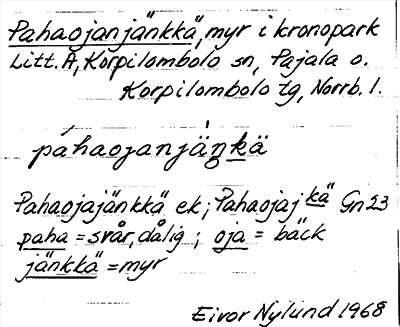 Pahaojanjänkkä, myr i kronopark
Litt. A, Korpilombolo sn, Pajala o.
Korpilombolo tg, Norrb. l.
páhaojanjäŋkä
Pahaojajänkkä ek; Pahaojajkä Gn 23
paha = svår, dålig ; oja = bäck
jänkkä = myr
Eivor Nylund 1968